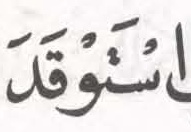 اسْتَوْقَدَ